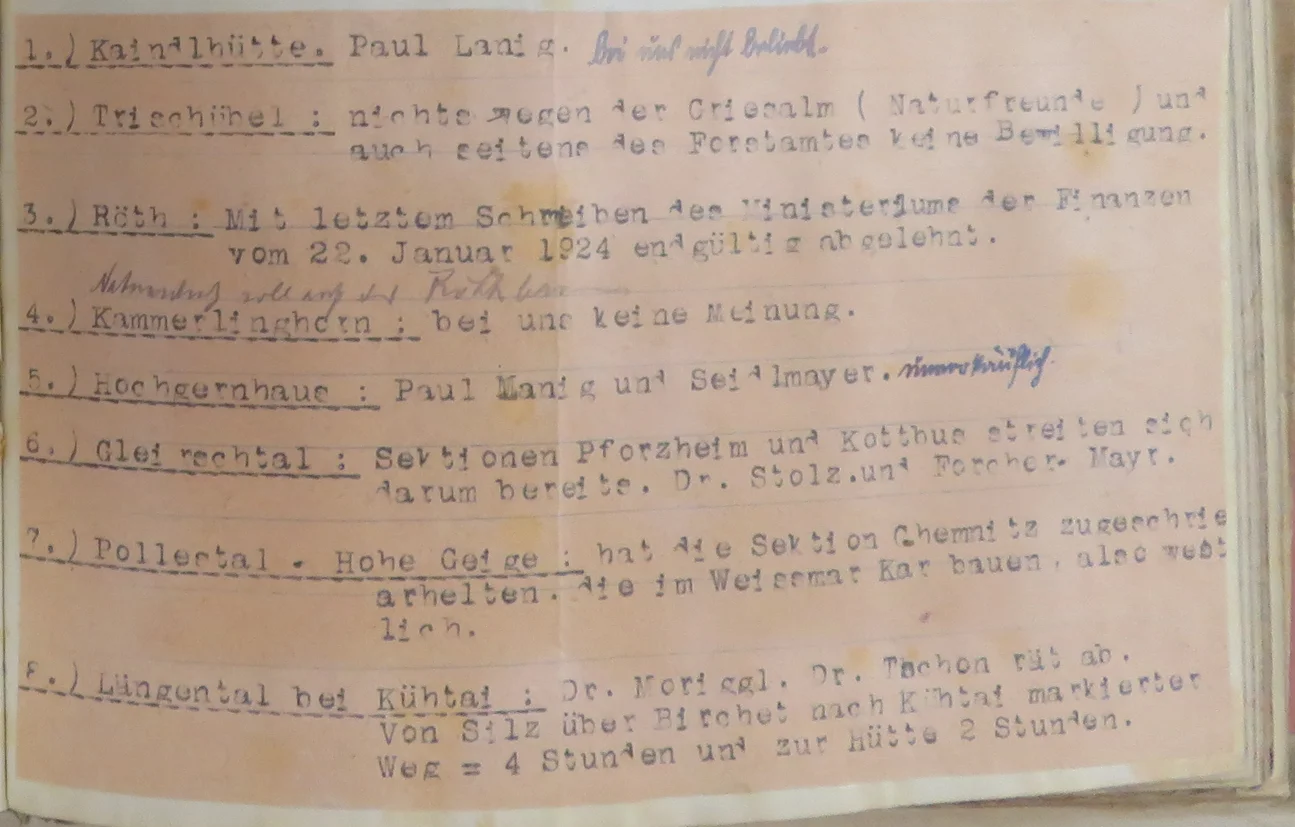 1.) Kaindlhütte. Paul Lanig. Bei uns nicht beliebt.
2.) Trischübel : nichts wegen der Griesalm ( Naturfreunde ) und
auch seitens des Forstamtes keine Bewilligung.
3.) Röth : Mit letztem Schreiben des Ministeriums der Finanzen
vom 22. Januar 1924 endgültig abgelehnt.
soll auf der Röth
4.) Kammerlinghorn : bei uns keine Meinung.
5.) Hochgernhaus : Paul Manig und Seidlmayer. unverkäuflich.
6.) Gleirschtal : Sektionen Pforzheim und Kottbus streiten sich
darum bereits. Dr. Stolz.und Forcher- Mayr.
7.) Pollestal - Hohe Geige : hat die Sektion Chemnitz zugeschrie
arhelten. die im Weissmar Kar bauen, also west
lich.
8.) Längental bei Kühtai : Dr. Moriggl. Dr. Tschon rät ab.
Von Silz über Birchet nach Kühtai markierter
Weg = 4 Stunden und zur Hütte 2 Stunden.